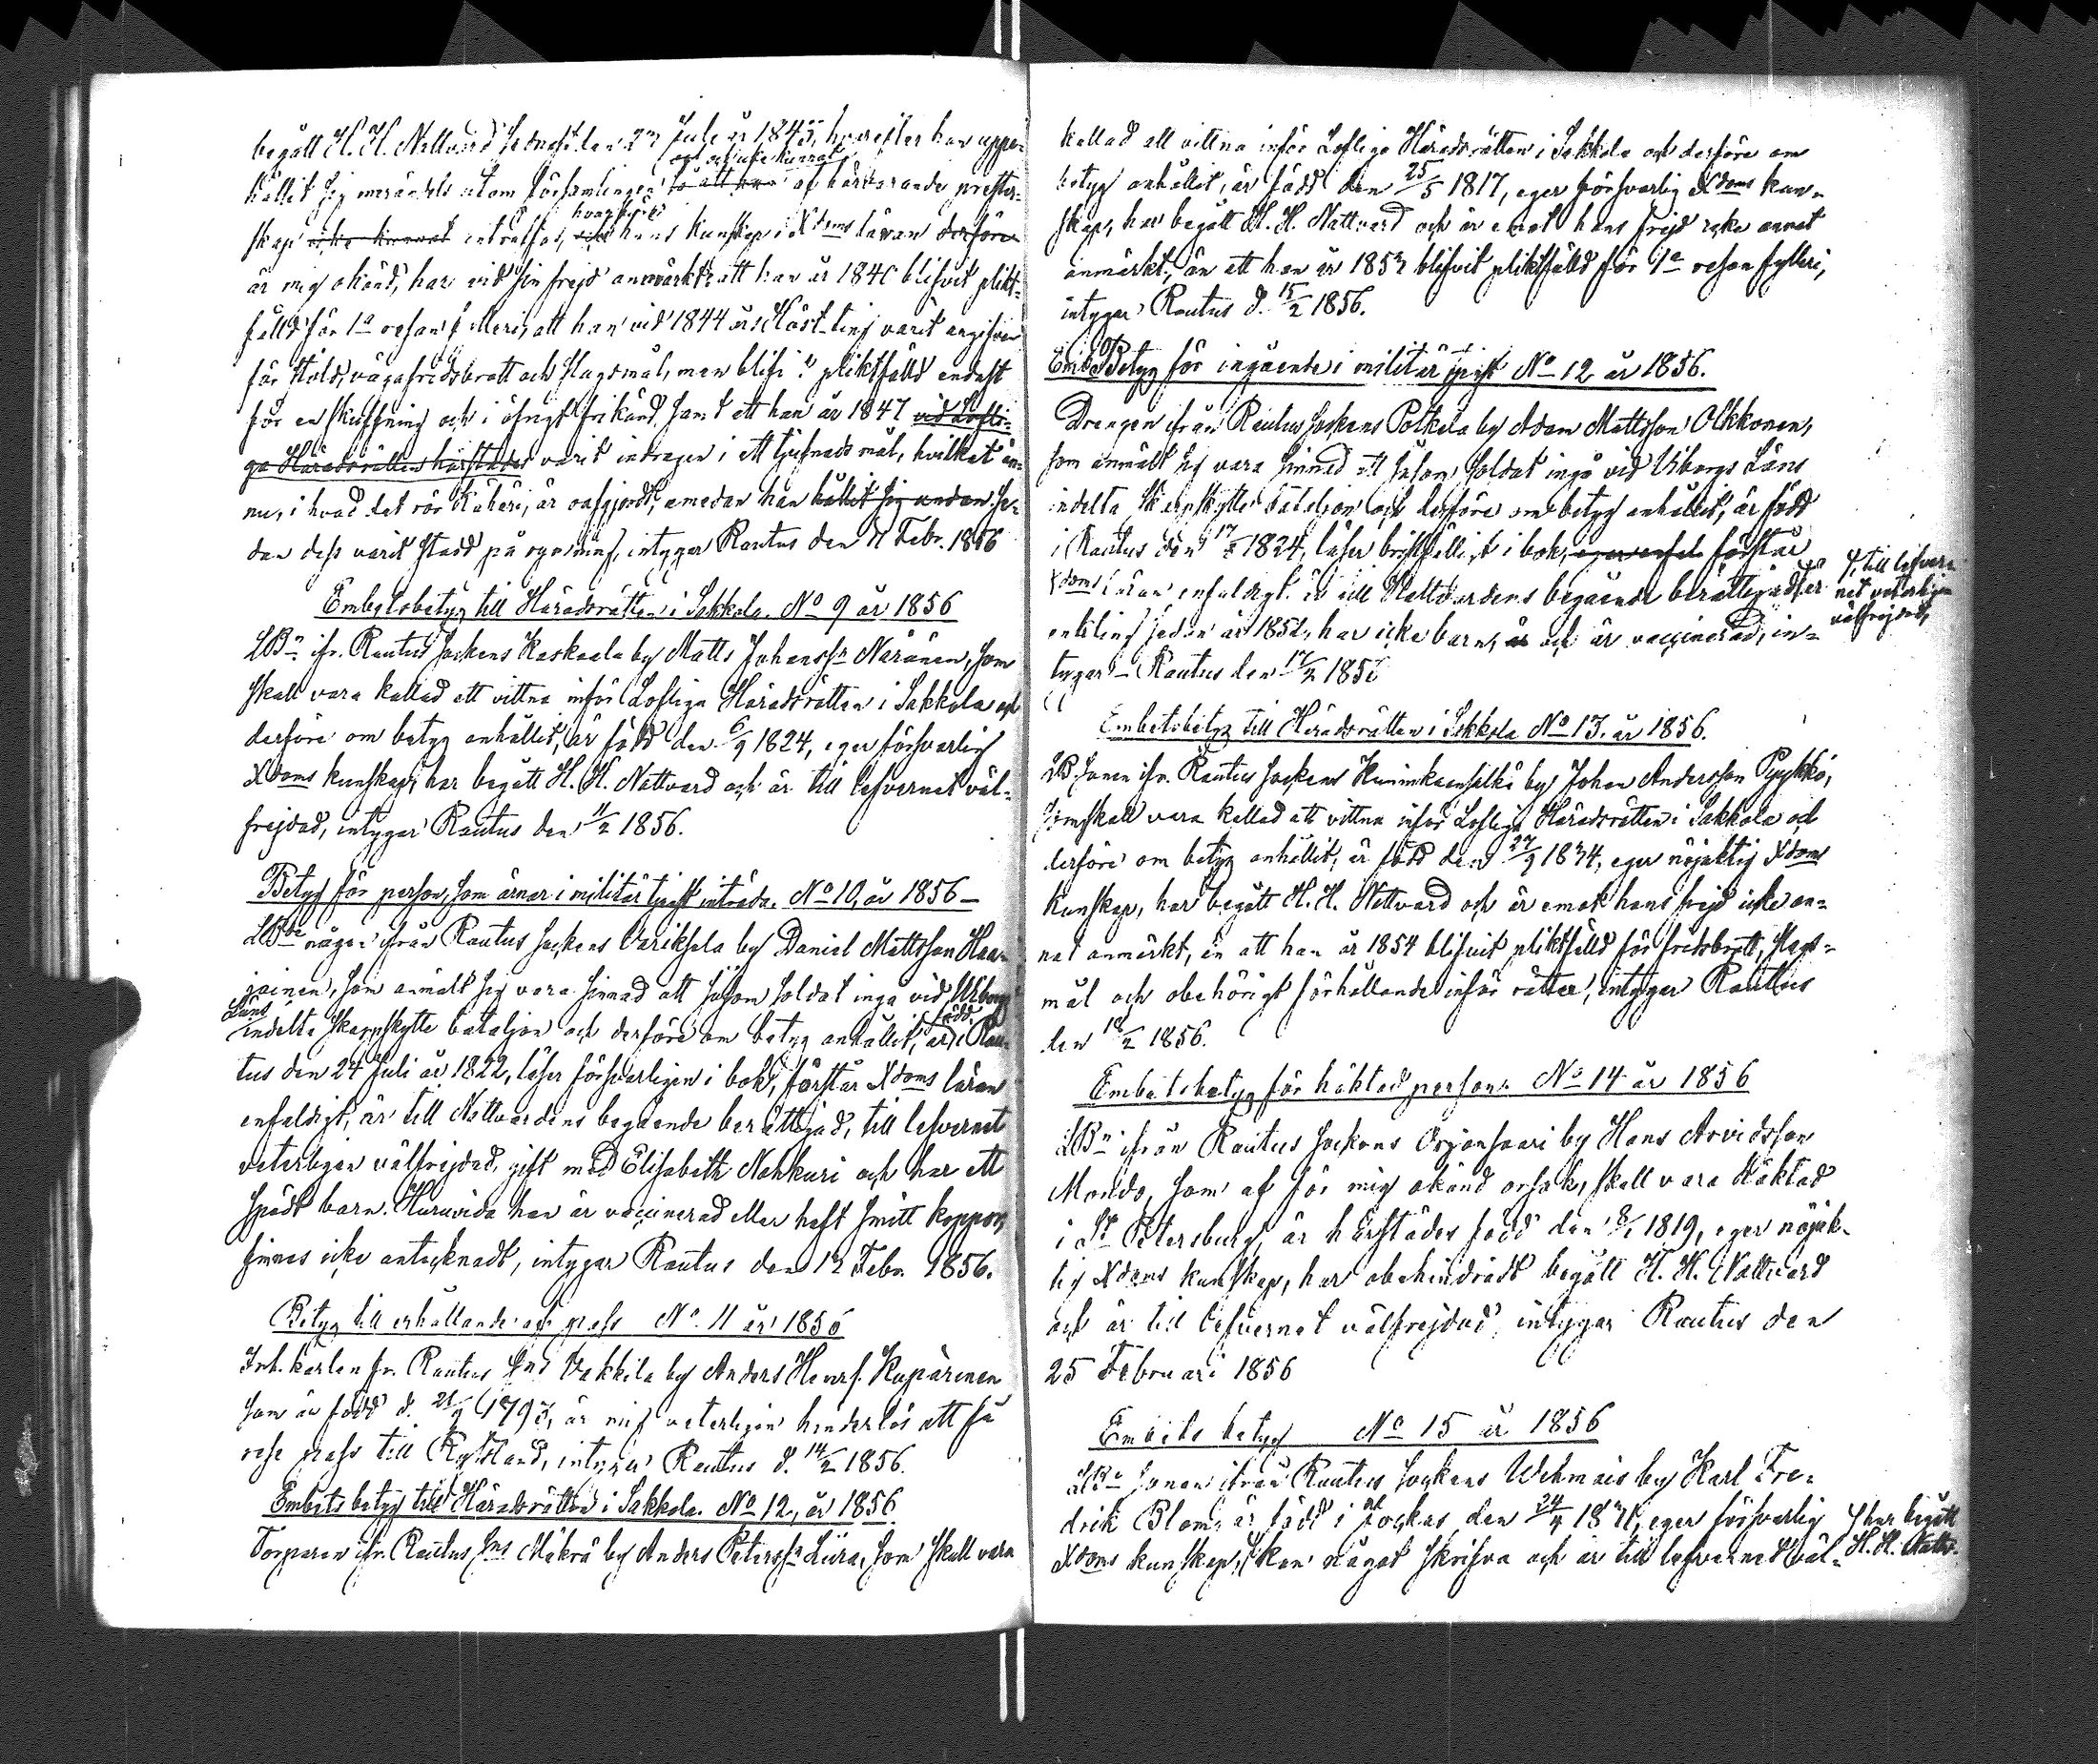 begått H. H. Nattvard sednast den 23 Juli år 1845, hvarefter han uppe-
hållit sig merändels utom församlingen så att han af härvarande prester-
och och icke kunnat
skap icke kunnat inträffas, hans kunskap i Xdoms läran derföre
hvarföre
är mig okänd, har vid sin frejd anmärkt: att han år 1840 blifvit plikt-
fälld för 1a resan fylleri, att han vid 1844 års Höst-ting varit angifven
för stöld, vägafridsbrott och slagsmål, men blifvit pliktfälld endast
för en skuffning och i öfrigt frikänd, samt att han år 1847 vid Lofli-
ga Häradsrätten härstädes varit indragen i ett tjufnadsmål, hvilket än-
nu, i hvad det rör Kähäri, är oafgjordt, emedan han hållit sig undan se-
dan dess varit stadd på rymning, intygar Rautus den 7 Febr. 1856
Embetsbetyg till Häradsrätten i Sakkola. No 9 år 1856
LBn ifr. Rautus Sockens Kaskaala by Matts Johanssn Näränen, som
skall vara kallad att vittna inför Lofliga Häradsrätten i Sakkola och
derföre om betyg anhållit, är född den 6/9 1824, eger försvarlig
Xdoms kunskap, har begått H. H. Nattvard och är till lefvernet väl-
frejdad, intygar Rautus den 11/2 1856.
Betyg för person, som ärnar i militärtjenst inträda. No 10, år 1856 —
LBde ifrån Rautus Sockens Variksela by Daniel Mattsson Haa-
jainen, som anmält sig vara sinnad att såsom soldat ingå vid Wiborgs
Läns
indelta skarpskytte bataljon och derföre om betyg anhållit, är i Rau-
född
tus den 24 Juli år 1822, läser försvarligen i bok, förstår Xdoms läran
enfaldigt, är till Nattvardens begående berättigad, till lefvernet
veterligen välfrejdad, gift med Elisabeth Nahkuri och har ett
spädt barn. Huruvida han är vaccinerad eller haft smitt koppor,
finnes icke antecknadt, intygar Rautus den 13 Febr. 1856.
Betyg till erhållande af pass No 11 år 1856
Inh. karlen fr. Rautus Sns Vakkila by Anders Henrs. Kupärinen
som är född d. 21/9 1793, är mig veterligen hinderlös att få
rese pass till Ryssland, intygar Rautus d. 14/2 1856.
Embetsbetyg till Häradsrätten i Sakkola. No 12, år 1856
Torparen ifr. Rautus Sns Mäkrä by Anders Peterssn Liira, som skall vara
kallad att vittna inför Lofliga Häradsrätten i Sakkola och derföre om
betyg anhållit, är född den 25/5 1817, eger försvarlig Xdoms kun-
skap, har begått H. H. Nattvard och är emot hans frejd icke annat
anmärkt, än att han år 1853 blifvit pliktfälld för 1a resan fylleri,
intygar Rautus d. 15/2 1856.
Betyg för ingående i militär tjenst No 12 år 1856.
Drengen ifrån Rautus Sockens Potkela by Adam Mattsson Olkkonen,
som anmält sig vara sinnad att såsom soldat ingå vid Wiborgs Läns
indelta skarpskytte bataljon och derföre om betyg anhållit, är född
i Rautus den 17 1824, läser bristfälligt i bok, förstår
Xdoms läran enfaldigt, är till Nattvardens begående berättigad, är
till lefver-
net veterligen
välfrejdad,
enkling sedan år 1852, har icke barn, är och är vaccinerad, in-
tygar — Rautus den 17/2 1856
Embetsbetyg till Häradsrätten i Sakkola No 13. år 1856.
LB.sonen ifr. Rautus Sockens Kuninkaanselkä by Johan Andersson Pyykkö,
som skall vara kallad att vittna inför Lofliga Häradsrätten i Sakkola och
derföre om betyg anhållit, är född den 27/9 1834, eger nöjaktig Xdoms
kunskap, har begått H. H. Nattvard och är emot hans frejd icke an-
nat anmärkt, än att han år 1854 blifvit pliktfälld för fridsbrott, slags-
mål och obehörigt förhållande inför rätta, intygar Rautus
den 18/2 1856.
Embetsbetyg för häktad person. No 14 år 1856
LBn ifrån Rautus Sockens Orjansaari by Hans Arvidsson
Mondo, som af för mig okänd orsak, skall vara häktad
i St Petersburg, är härstädes född den 8/ 1819, eger nöjak-
tig Xdoms kunskap, har obehindradt begått H. H. Nattvard
och är till lefvernet välfrejdad, intygar Rautus den
25 Februari 1856
Embets betyg No 15 år 1856
LBn sonen ifrån Rautus Sockens Wehmais by Karl Fre-
drik Blom, är född i Jockas den 24/4 1831, eger försvarlig
Xdoms kunskap, kan något skrifva och är till lefvernet väl-
har begått
H. H. Nattv.